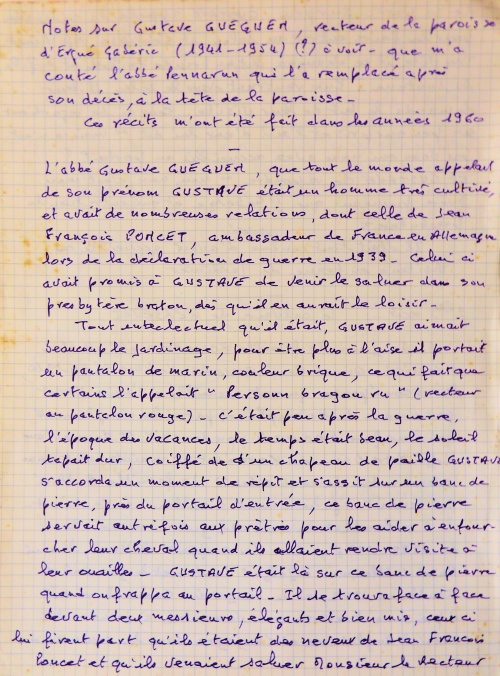 Notes sur Gustave GUEGUEN, recteur de la paroisse
d'Ergué Gabéric (1941-1954) (?) à voir - que m'a
conté l'abbé Pennarun qui l'a remplacé après
son décès, à la tête de la paroisse -
Ces récits m'ont été fait dans les années 1960
—
L'abbé Gustave GUEGUEN, que tout le monde appelait
de son prénom GUSTAVE était un homme très cultivé,
et avait de nombreuses relations, dont celle de Jean
François PONCET, ambassadeur de France en Allemagne
lors de la déclaration de guerre en 1939 - Celui ci
avait promis à GUSTAVE de venir le saluer dans son
presbytère breton, dès qu'il en aurait le loisir -
Tout intellectuel qu'il était, GUSTAVE aimait
beaucoup le jardinage, pour être plus à l'aise il portait
un pantalon de marin, couleur brique, ce qui fait que
certains l'appelait " Personn bragou ru " (recteur
au pantalon rouge) - C'était peu après la guerre,
l'époque des vacances, le temps était beau, le soleil
tapait dur, coiffé de d'un chapeau de paille GUSTAVE
s'accorda un moment de répit et s'assit sur un banc de
pierre, près du portail d'entrée, ce banc de pierre
servait autrefois aux prêtres pour les aider à enfour-
cher leur cheval quand ils allaient rendre visite à
leur ouailles - GUSTAVE était là sur ce banc de pierre
quand on frappa au portail - Il se trouva face à face
devant deux messieurs, élégants et bien mis, ceux ci
lui firent part qu'ils étaient des neveux de Jean François
Poncet et qu'ils venaient saluer Monsieur le Recteur